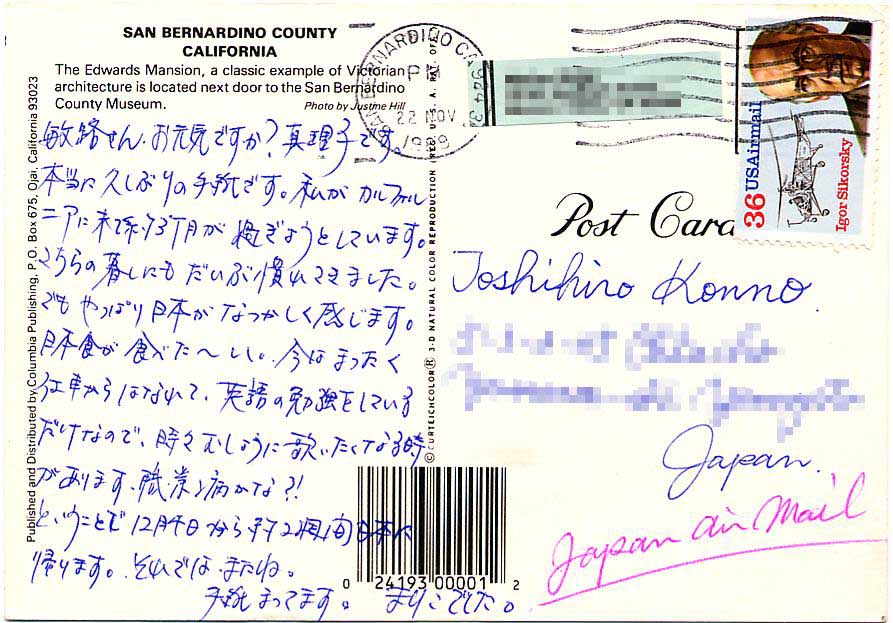 SAN BERNARDINO COUNTY
CALIFORNIA
The Edwards Mansion, a classic example of Victorian
architecture is located next door to the San Bernardino
County Museum.
Photo by Justine Hill
敏路さん、お元気ですか?真理子です。
本当に久しぶりの手紙です。私がカルフォル
ニアに来て約3ヶ月が過ぎようとしています。
こちらの暮しにもだいぶ慣れてきました。
でもやっぱり日本がなつかしく感じます。
日本食が食べた〜い。今はまったく
からはなれて、英語の勉強をしている
だけなので、時々むしょうに歌いたくなる時
があります。職業病かな?!
ということで12月 から 2週間日本に
帰ります。それでは、またね。
手紙まってます。 まりこでした。
Published and Distributed by Columbia Publishing, P.O. Box 675, Ojai, California 93023
© CURTEICHCOLOR® 3-D NATURAL COLOR REPRODUCTION (REG U.S.A. PAT. OFF
SAN BERNARDINO CA
924
PM
22 NOV
1989
36 USAirmail
Igor Sikorsky
Post Card
Toshihiro Konno
Japan.
Japan air Mail
0 24193 00001 2